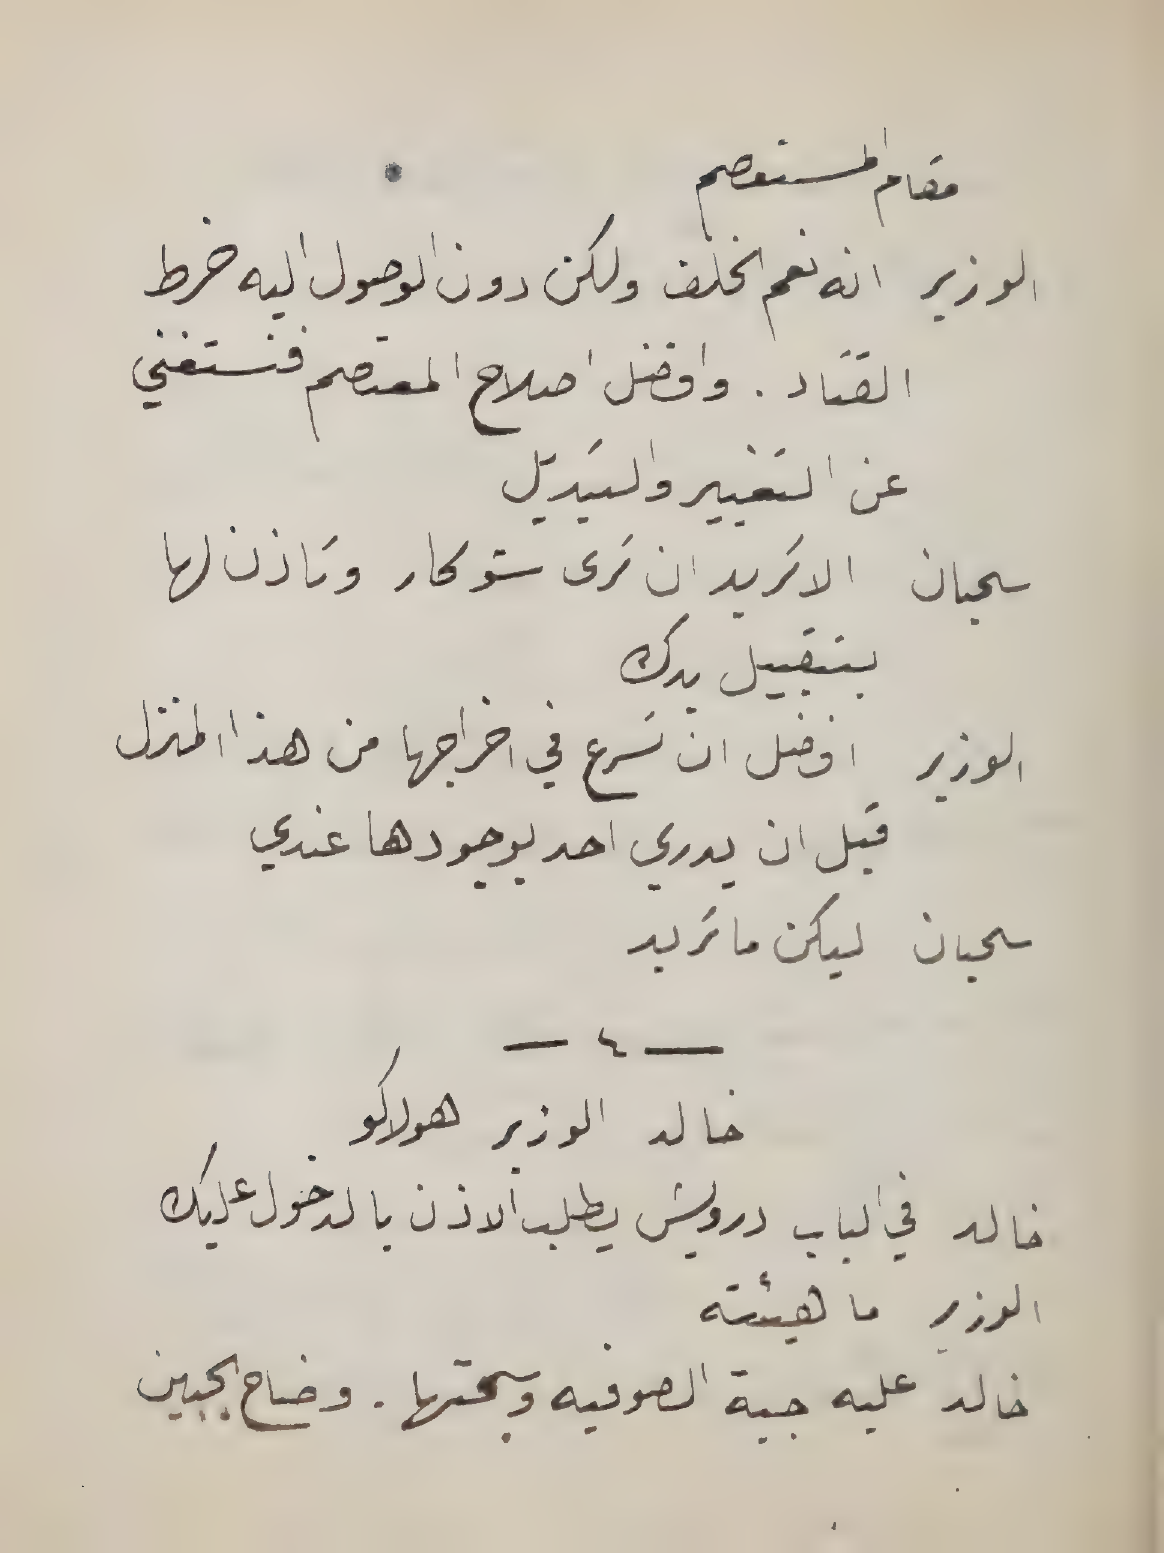 مقام المستعصم
الوزير انه نعم الخلف ولكن دون الوصول اليه خرط
القتاد . وافضل اصلاح المعتصم فنستغني
عن التغيير والتبديل
سحبان الا تريد ان ترى ستوكار وتاذن لها
بتقبيل يدك
الوزير افضل ان تسرع في اخراجها من هذا المنزل
قبل ان يدري احد بوجودها عندي
سحبان ليكن ما تريد
— ٤ —
خالد الوزير هولاكو
خالد في الباب درويش يطلب الاذن بالدخول عليك
الوزير ما هيئته
خالد عليه جبة الصوفيه وسبحتها . وضاح الجبين